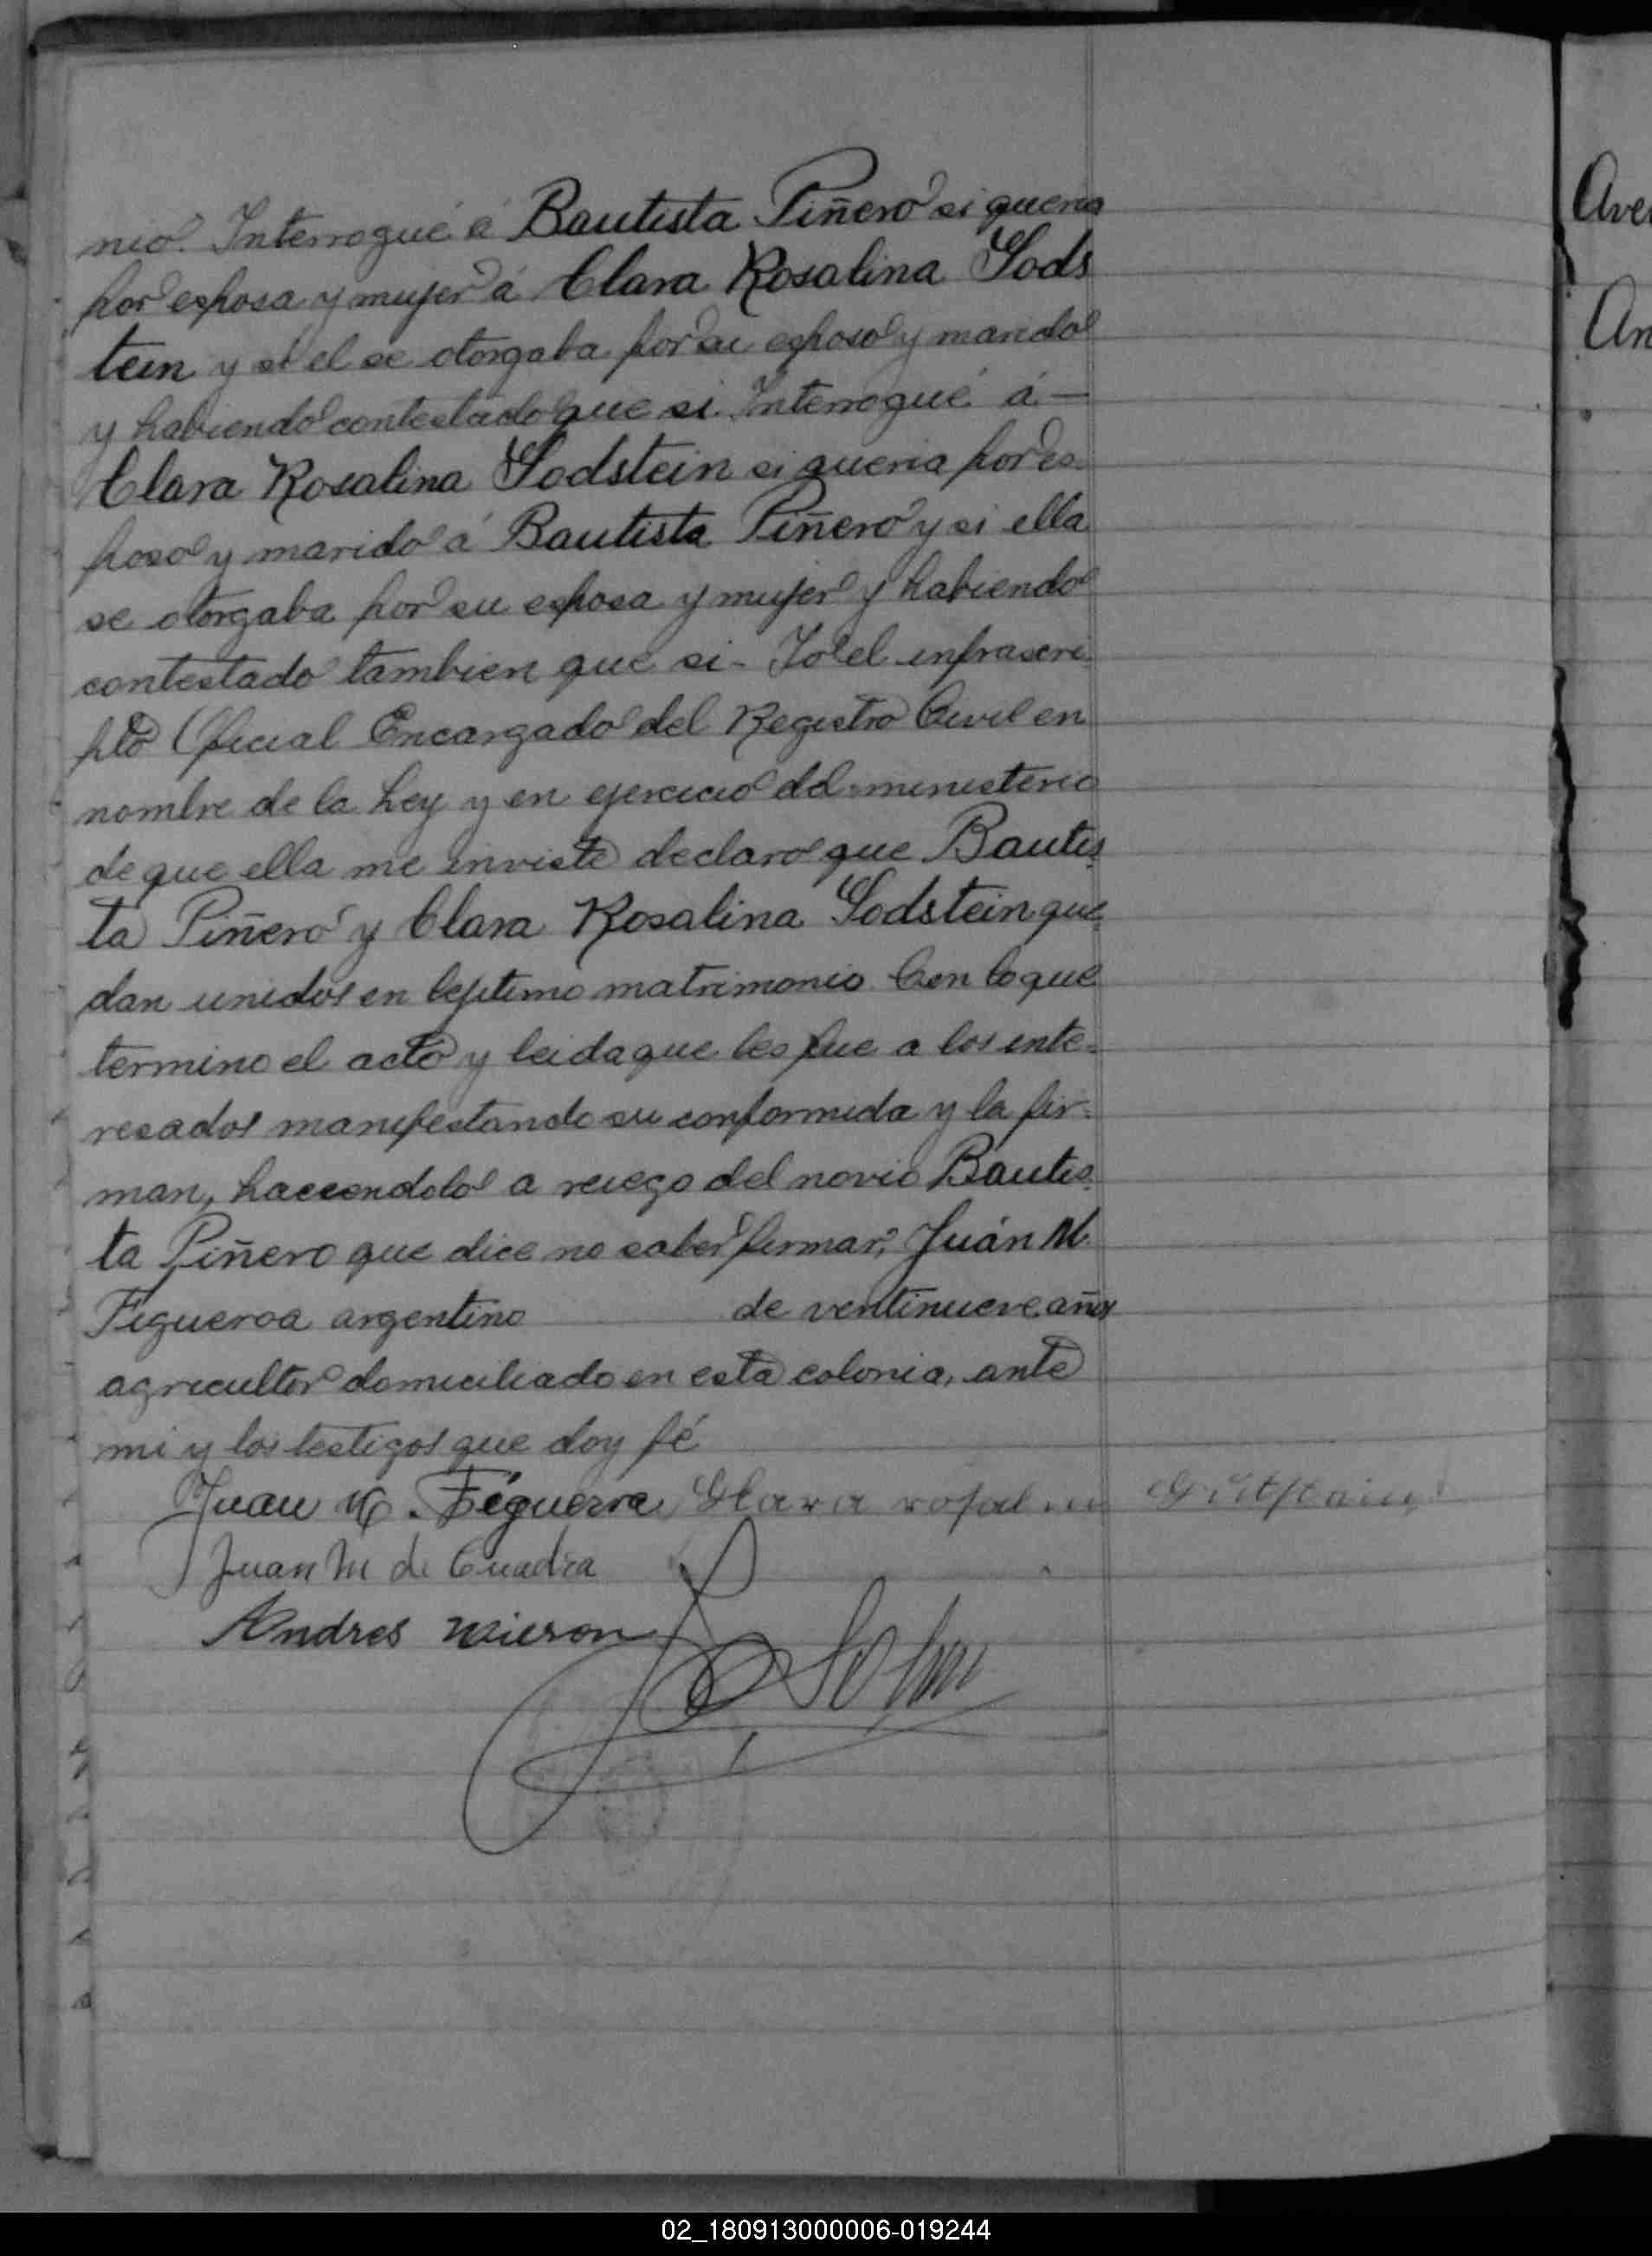 nio. Interrogué á Bautista Piñero si queria
por esposa y mujer á Clara Rosalina Sods
tein y si el se otorgaba por su esposo y marido
y habiendo contestado que si. Interrogué á —
Clara Rosalina Sodstein si queria por es-
poso y marido á Bautista Piñero y si ella
se otorgaba por su esposa y mujer y habiendo
contestado tambien que si - Yo el infrascri
pto Oficial Encargado del Registro Civil en
nombre de la Ley y en ejercicio del ministerio
de que ella me inviste declaro que Bautis
ta Piñero y Clara Rosalina Sodstein que
dan unidos en lejitimo matrimonio. Con lo que
termino el acto y leida que les fue a los inte-
resados manifestando su conformida y la fir-
man, haciendolo a ruego del novio Bautis-
ta Piñero que dice no saber firmar, Juán M.
Figueroa argentino de ventinueve años
agricultor domiciliado en esta colonia, ante
mi y los testigos que doy fé
Juan M. Figueroa Clara rosalin
Juan M de Cuadra
Andres
Ave
An
02_180913000006-019244